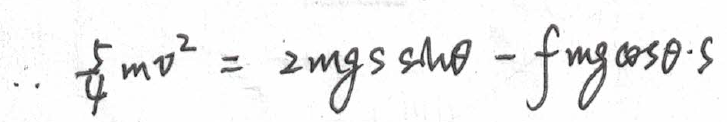 ∴ 5/4 mv² = 2mgs sinθ - fmg cosθ·s